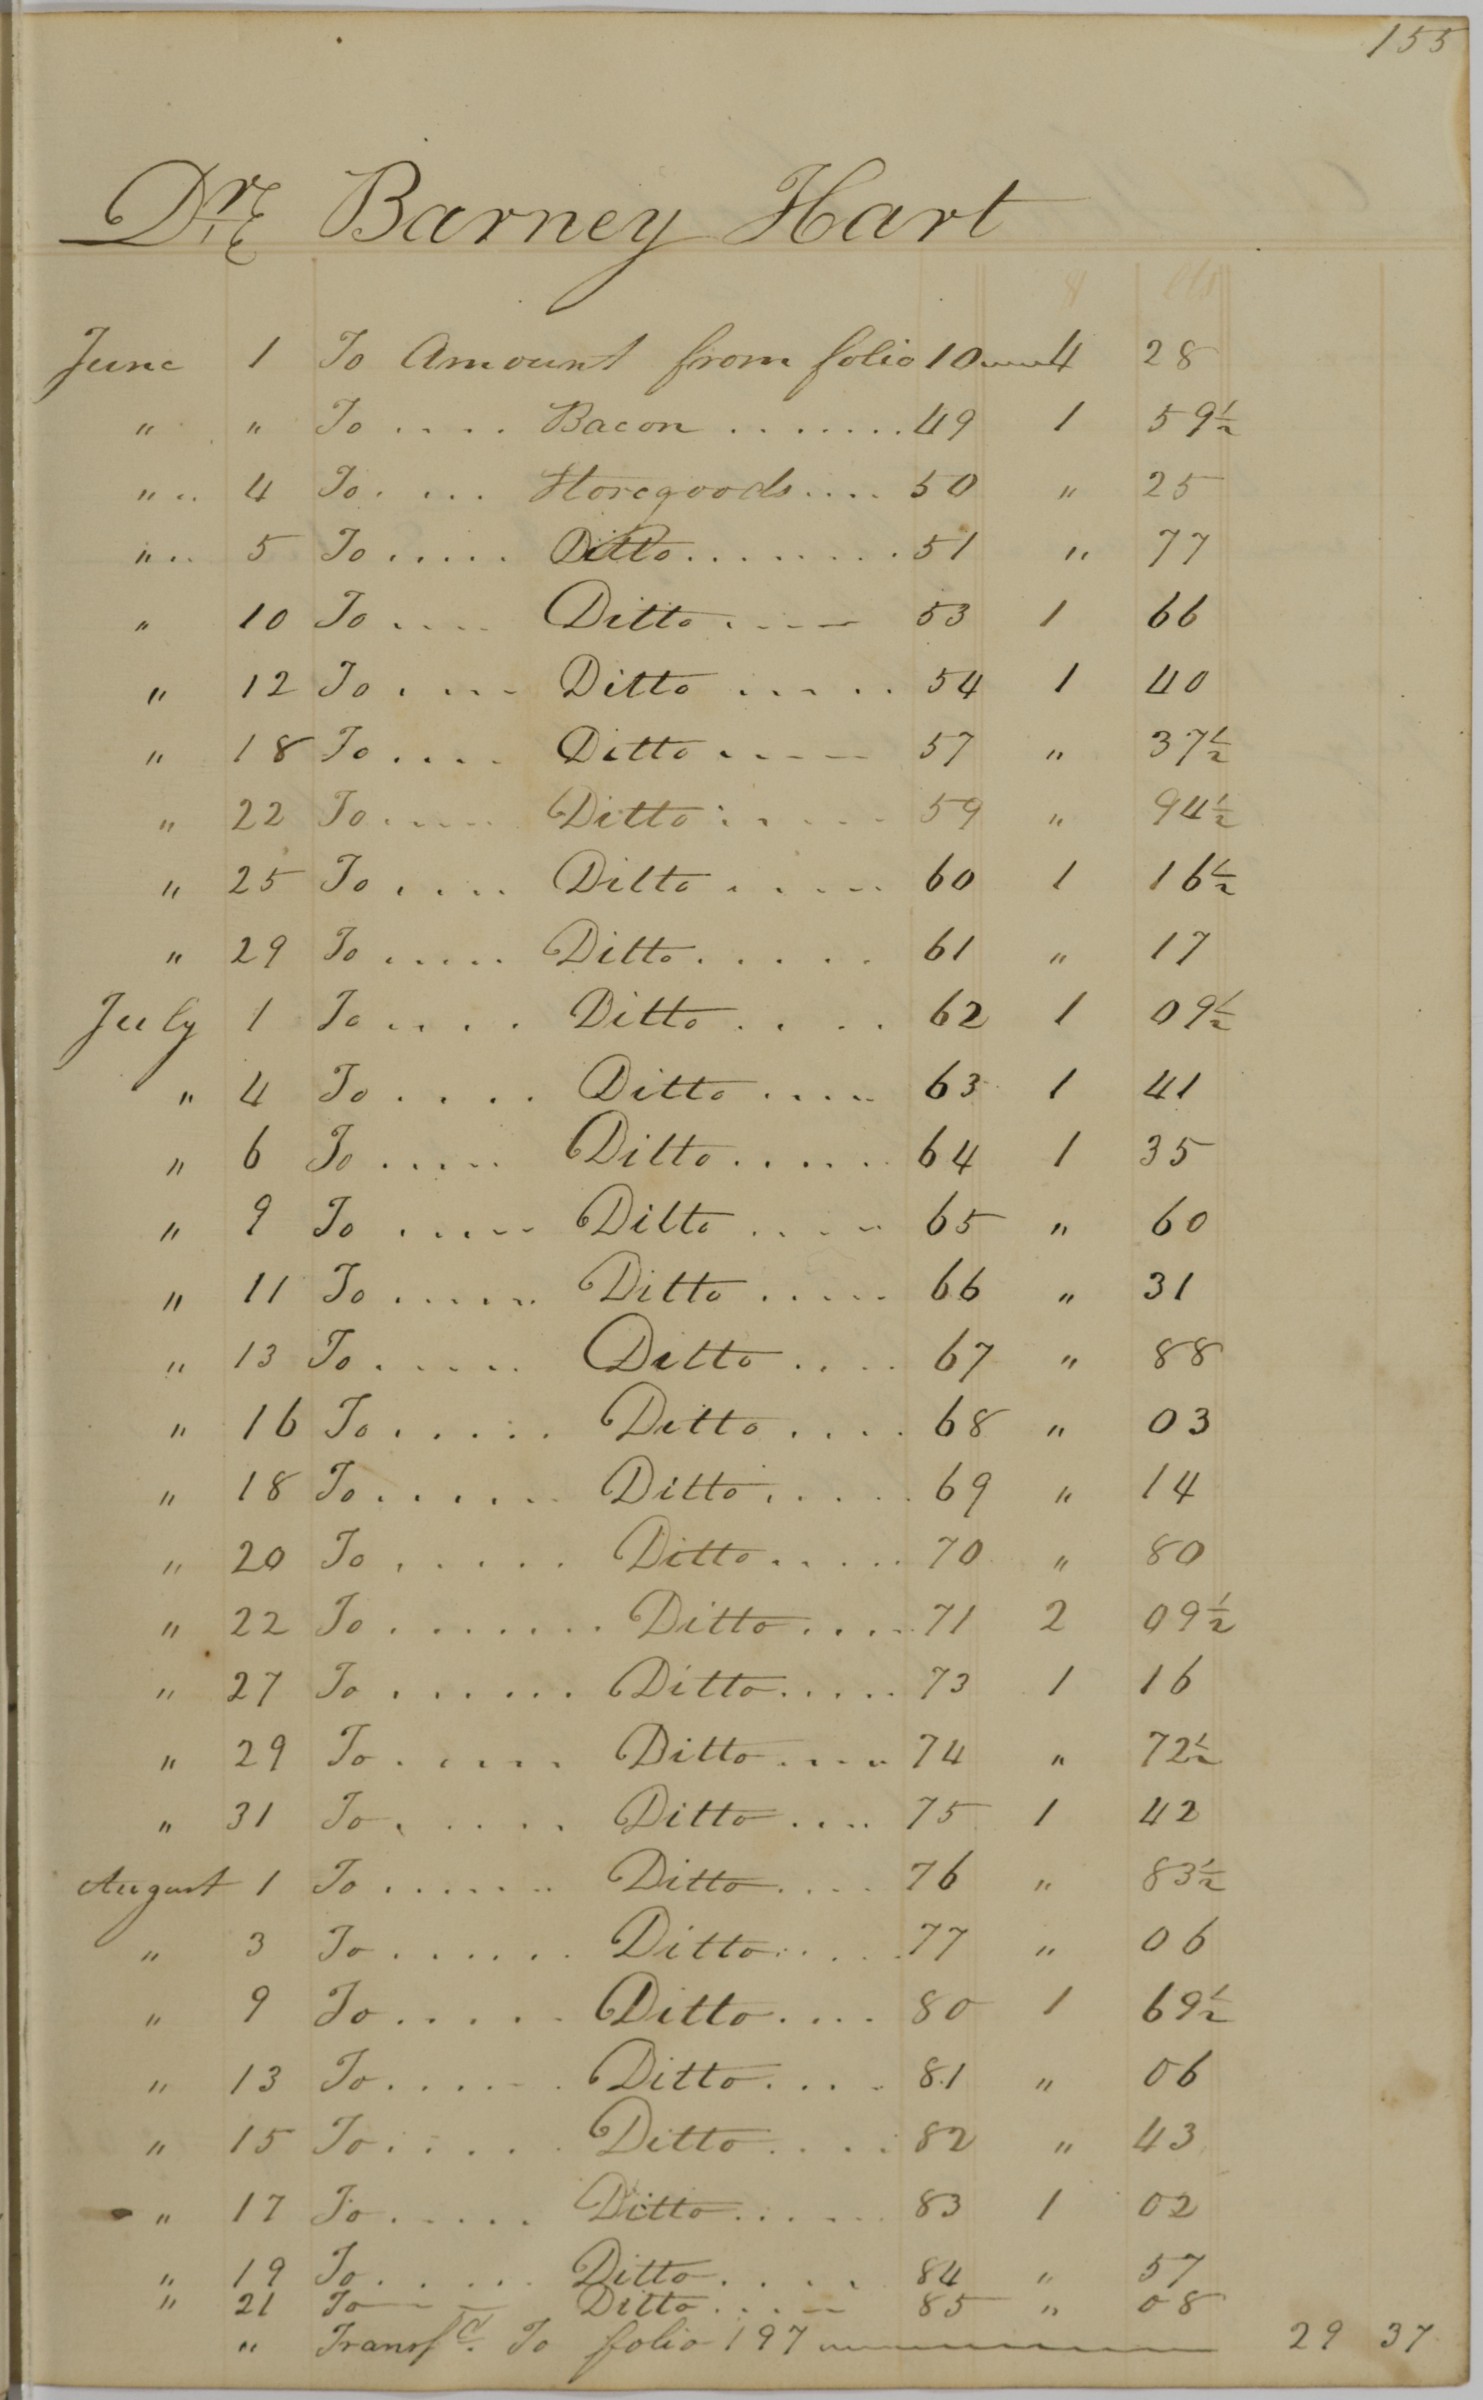 155
Dr Barney Hart
$ cts
June 1 To Amount from folio 10 4 28
" " To .... Bacon ....... 49 1 59½
" .. 4 To. ... Storegoods.... 50 " 25
" .. 5 To ..... Ditto........ 51 " 77
" 10 To .... Ditto .... 53 1 66
" 12 To .... Ditto ..... 54 1 40
" 18 To .... Ditto ..... 57 " 37½
" 22 To ..... Ditto ..... 59 " 94½
" 25 To .... Ditto ..... 60 1 16½
" 29 To ..... Ditto ..... 61 " 17
July 1 To .... Ditto .... 62 1 09½
" 4 To .... Ditto .... 63 1 41
" 6 To ..... Ditto ...... 64 1 35
" 9 To ..... Ditto .... 65 " 60
" 11 To ...... Ditto ..... 66 " 31
" 13 To ..... Ditto .... 67 " 88
" 16 To ..... Ditto .... 68 " 03
" 18 To ...... Ditto ..... 69 " 14
" 20 To ..... Ditto ..... 70 " 80
" 22 To ....... Ditto .... 71 2 09½
" 27 To ...... Ditto ..... 73 1 16
" 29 To ..... Ditto .... 74 " 72½
" 31 To ..... Ditto .... 75 1 42
August 1 To ...... Ditto .... 76 " 83½
" 3 To ...... Ditto ..... 77 " 06
" 9 To ..... Ditto .... 80 1 69½
" 13 To ...... Ditto .... 81 " 06
" 15 To ..... Ditto .... 82 " 43
" 17 To ..... Ditto ...... 83 1 02
" 19 To ..... Ditto ..... 84 " 57
" 21 To ... Ditto ..... 85 " 08
" Transfd. To folio 197 29 37